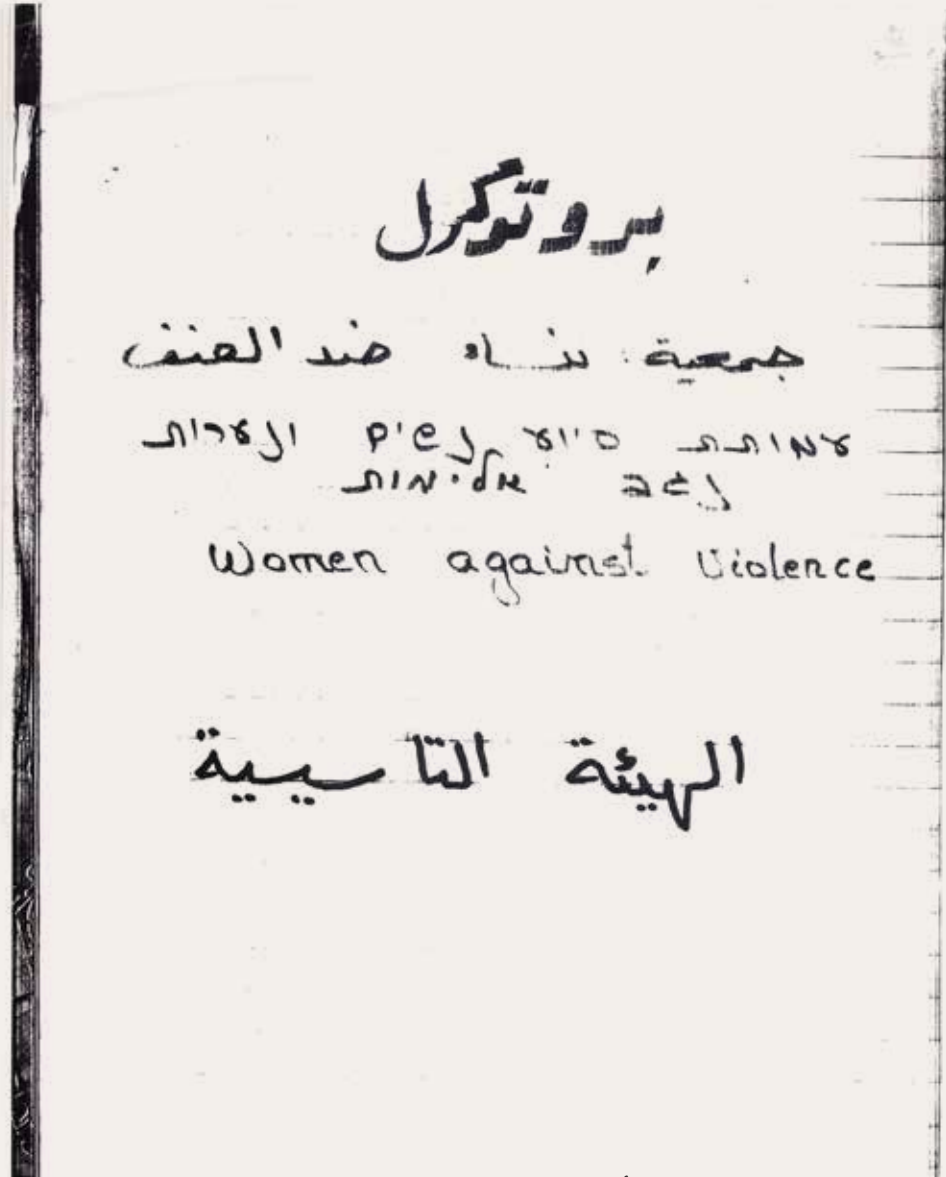 بروتوكول
جمعية نساء ضد العنف
עמותת סיוע לנשים ונערות
נגד אלימות
Women against Violence
الهيئة التاسيسية